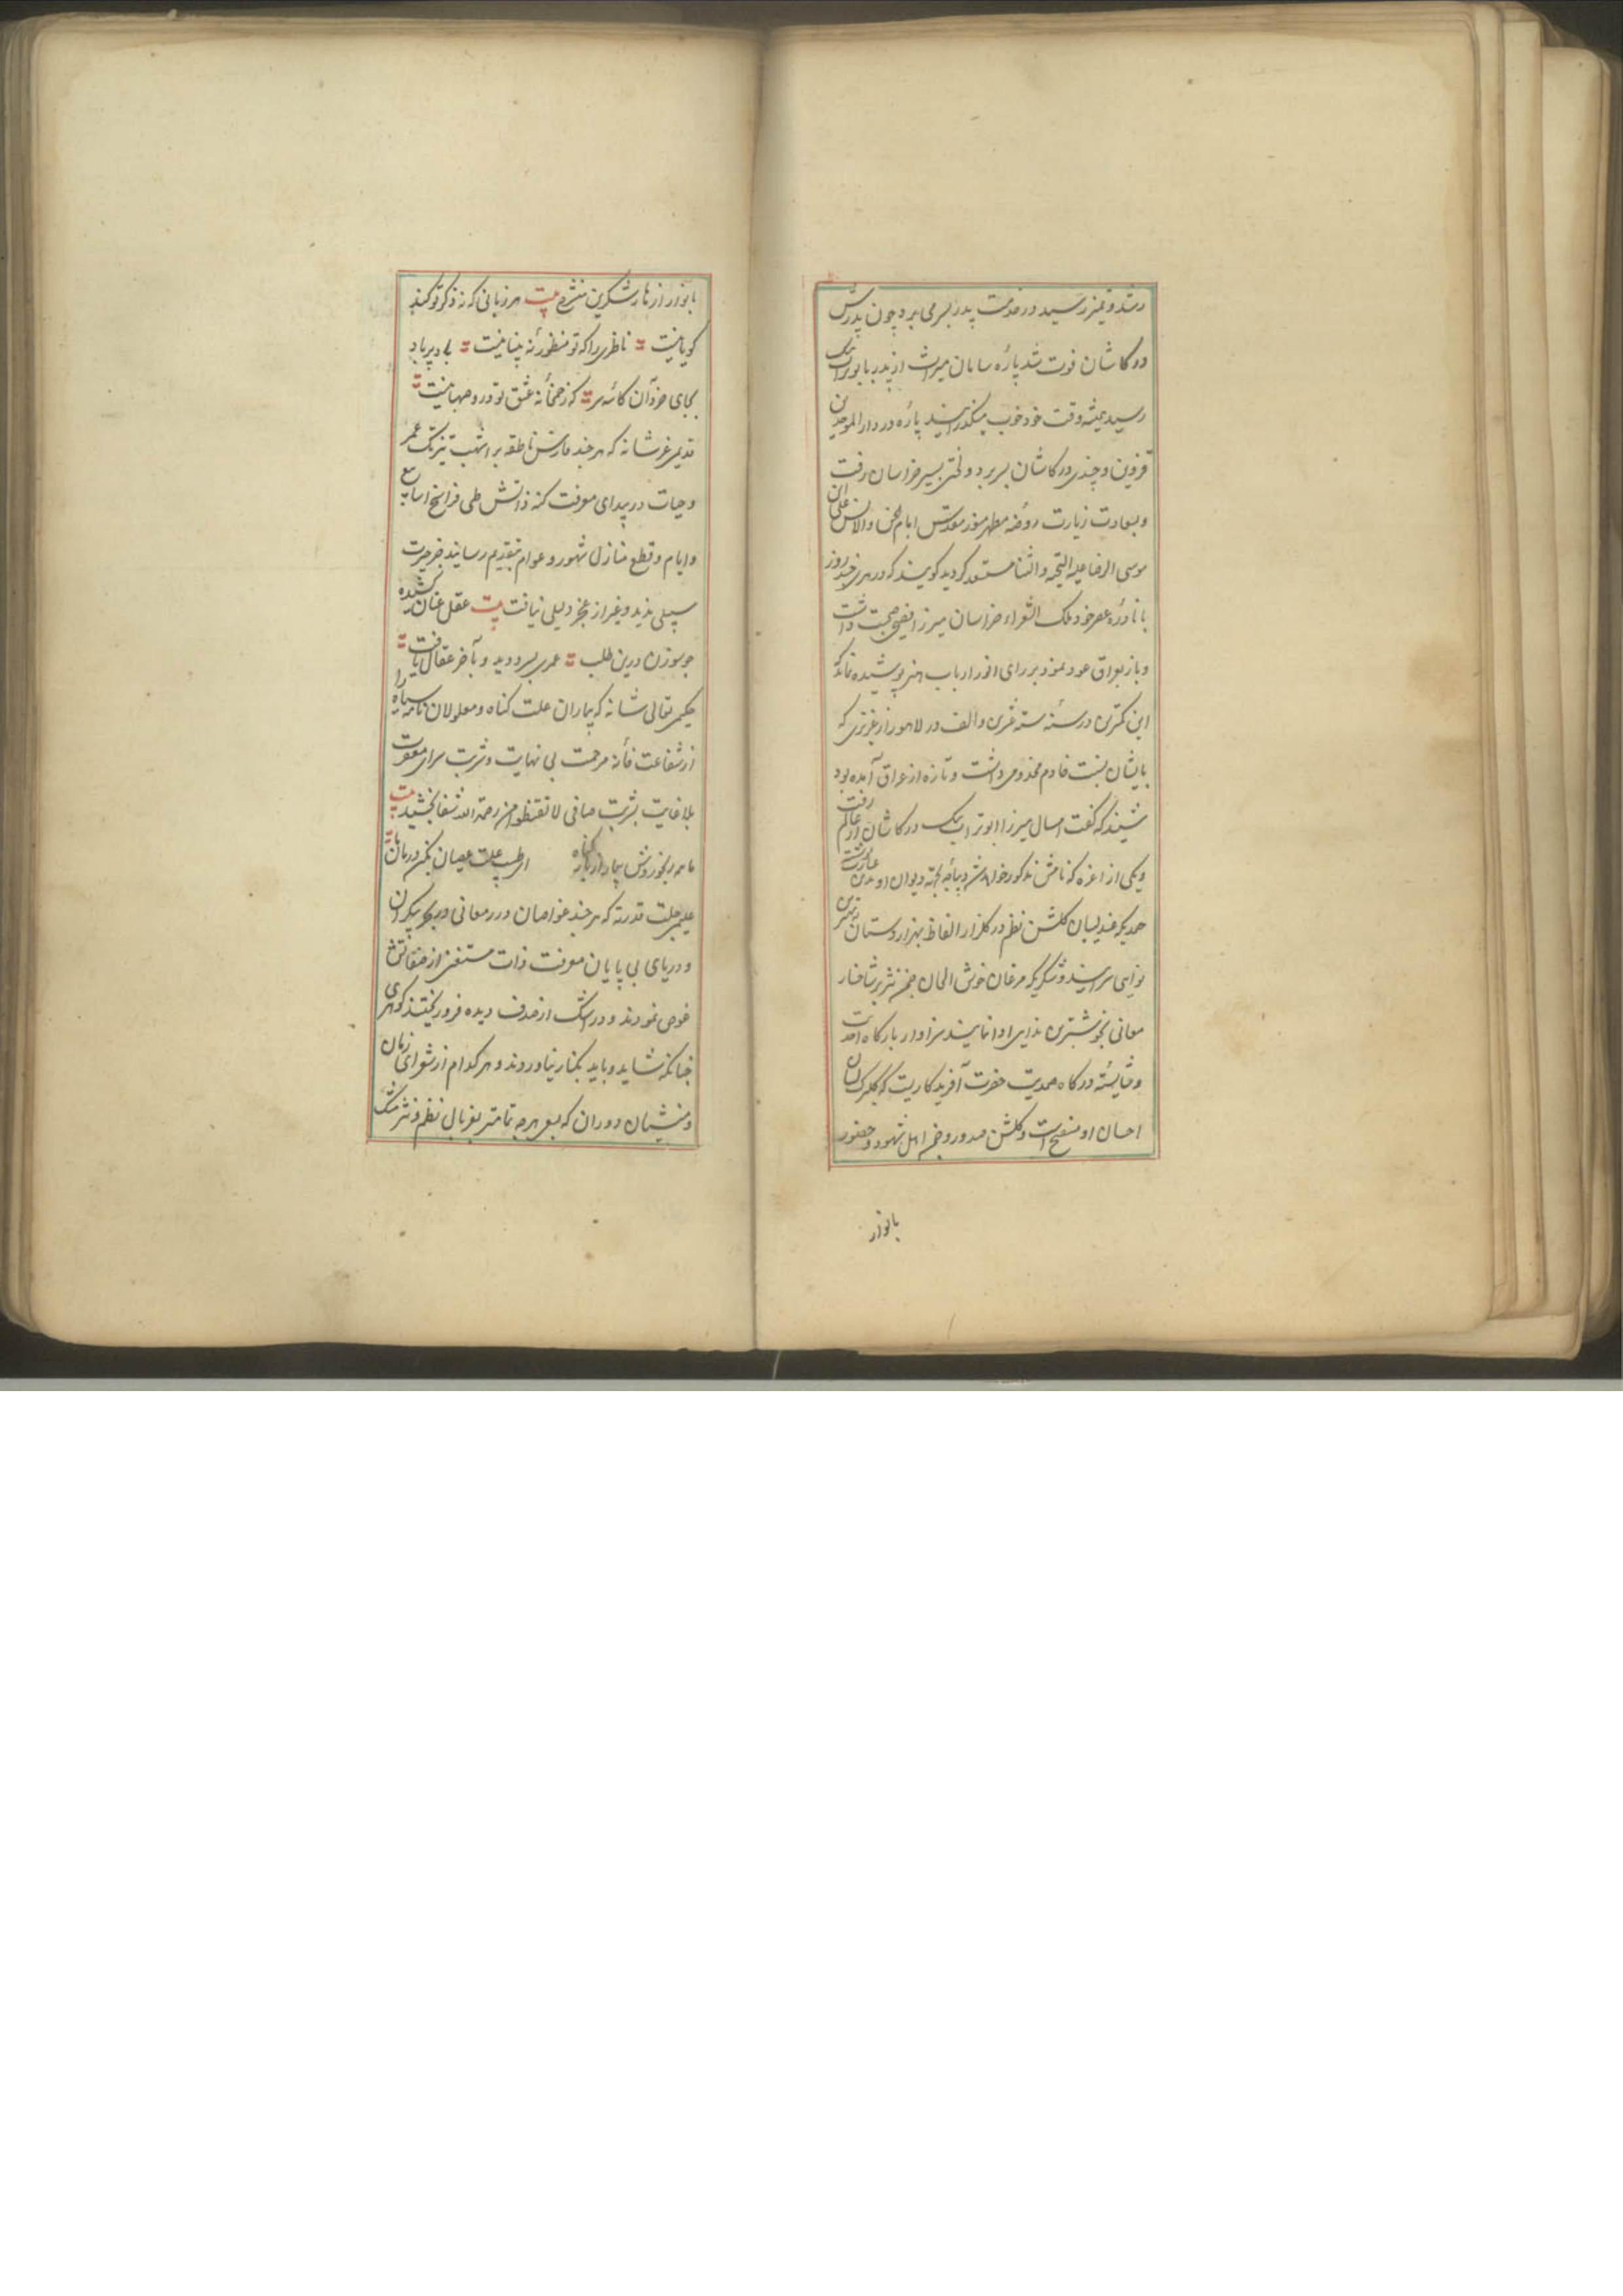 رشد و تمیز رسید در خدمت پدر بسر می برد چون پدرش
در کاشان فوت شد پارهٔ سامان میراث از پدر بابوتراب بیک
رسید همیشه وقت خود خوب میگذرانید پاره در دار الموحدین
قزوین و چندی در کاشان بسر برد وقتی بسیر خراسان رفت
و بسعادت زیارت روضه مطهر منور مقدس امام الجن والانس علی ابن
موسی الرضا علیه التحیه والثنا مستعد کردید کویند که در هری چند روز
با نادرهٔ عصر خود ملک الشعراء خراسان میرزا فصیحی صحبت داشت
و باز بعراق عود نمود بر رای انور ارباب هنر پوشیده نماند که
این کمترین در سنه سته عشرین والف در لاهور از عزیزی که
بایشان نسبت خادم مخدومی داشت و تازه از عراق آمده بود
شنید که گفت امسال میرزا ابوتراب بیک در کاشان از عالم رفت
و یکی از اعزه که نامش مذکور خواهد شد دیباچه بجهة دیوان او بدین عبارت نوشت
حمدیکه عندلیبان کلشن نظم در کلزار الفاظ بهزار دستان بهترین
نوایی سرایند و شکریکه مرغان خوش الحان چمن نثر بر شاخسار
معانی بخوشترین ندایی ادا نمایند سزاوار بارکاه احدیت
و شایسته درکاه صمدیت حضرت آفریدکاریست که کلبرک لسان
احسان او منفتح است و کلشن صدور و چمن اهل شهود و حضور
بانوار
بانوار ازهار شکرین منشرح بیت هر زبانی که ز ذکر تو کند
کویا نیست ناظری را که تو منظور نهٔ بینا نیست بلا دیر باد
بجای خرد آن کاسهٔ سر که ز خمخانهٔ عشق تو درو صهبا نیست
قدیمی عز شانه که هر چند فارس ناطقه بر اشهب تیزتک عمر
و حیات در بیدای معرفت کنه ذاتش طی فراسخ اسابیع
و ایام و قطع منازل شهور و عوام بتقدیم رسانید جز حیرت
سبیلی ندید و غیر از عجز دلیلی نیافت بیت عقل عنان کشیده
چو سوزن درین طلب عمری بسر دوید و بآخر عقال یافت
حکیمی تعالی شانه که بیماران علت کناه و معلولان نامه سیاه را
از شفاعت خانهٔ مرحمت بی نهایت و شربت سرای مغفرت
بلا غایت بشربت صافی لا تقنطوا من رحمة الله شفا بخشید بیت
ما همه رنجور و ش بیمار از بار کناه ای طبیب علت عصیان بکن درمان ما
علیمی جلت قدرته که هر چند غواصان درر معانی در بحر بیکران
و دریای بی پایان معرفت ذات مستغنی از صفاتش
غوص نمودند و در اشک از صدف دیده فرو ریختند کوهری
چنانکه شاید و باید بکنار نیاوردند و هر کدام از شعرای زمان
و منشیان دوران که بسعی هر چه تمامتر بغربال نظم و نثر مشک